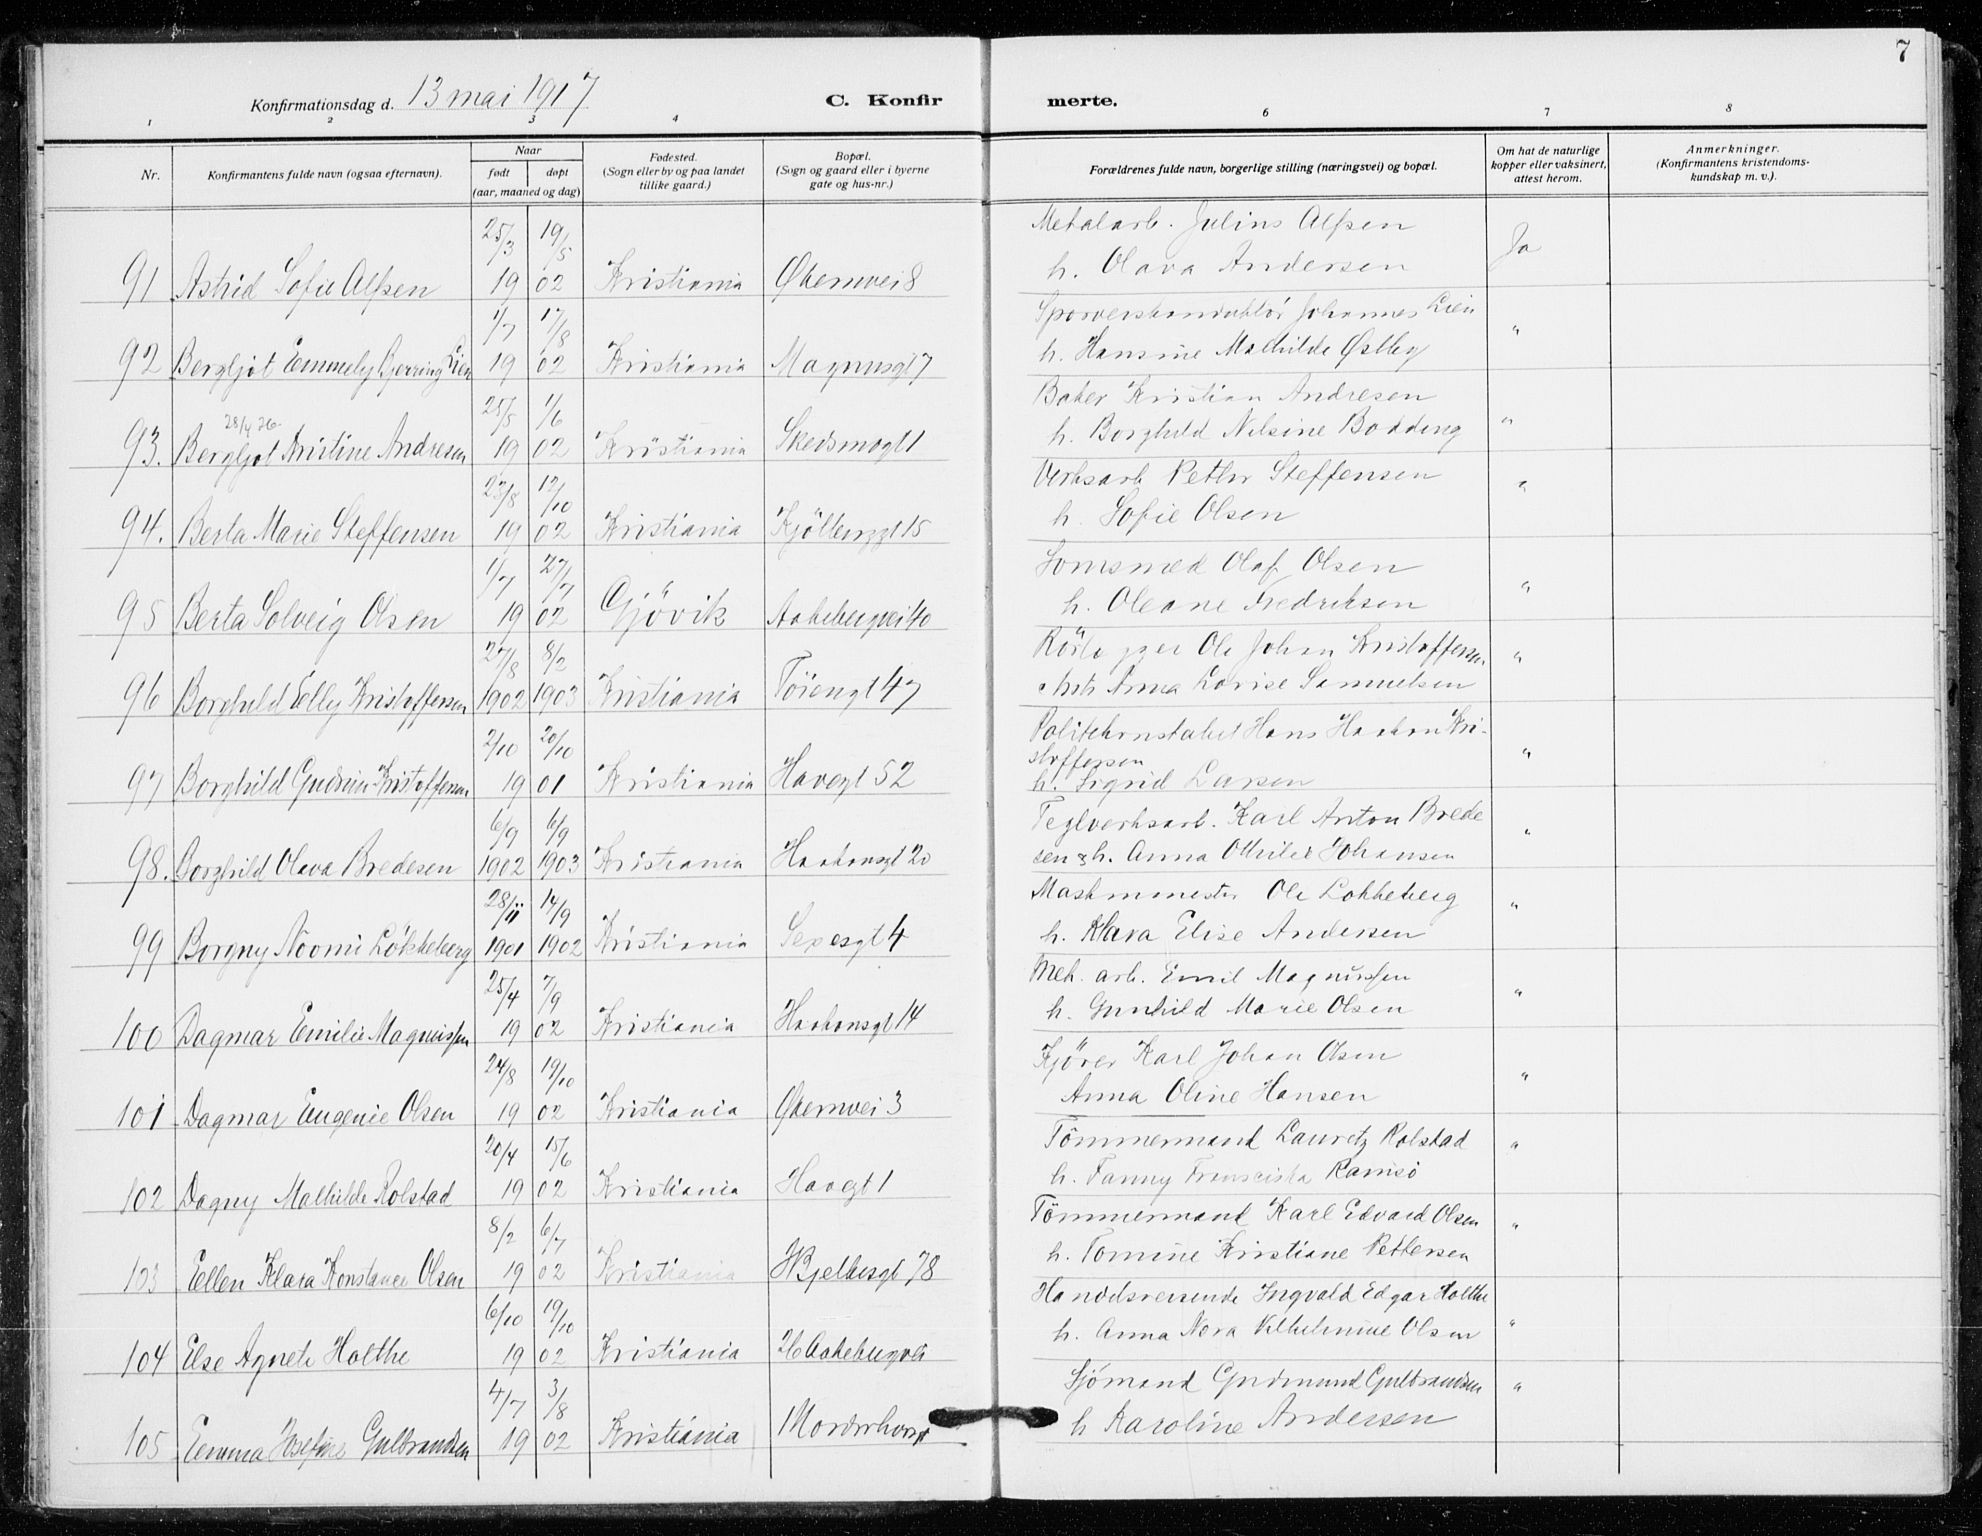 7
Konfirmationsdag d. 13 mai 1917
C. Konfir
merte.
1 2 3 4 6 7 8
Nr.
Konfirmantens fulde navn (ogsaa efternavn).
Naar
født
døpt
(aar, maaned og dag)
Fødested.
(Sogn eller by og paa landet
tillike gaard.)
Bopæl.
(Sogn og gaard eller i byerne
gate og hus-nr.)
Forældrenes fulde navn, borgerlige stilling (næringsvei) og bopæl.
Om hat de naturlige
kopper eller vaksinert,
attest herom.
Anmerkninger.
(Konfirmantens kristendoms-
kundskap m. v.).
25/3 19/5 Metalarb. Julius Alfsen
91 Astrid Sofie Alfsen 19 02 Kristiania Økernvei 8 h. Olava Andersen Ja
1/7 17/8 Johannes Lien
92 Bergljot Emmely Bjerring Lien 19 02 Kristiania Magnusgt 7 h. Hansine Mathilde Østby "
25/5 1/6 Baker Kristian Andresen
28/4 26
93. Bergljot Kristine Andresen 19 02 Kristiania Skedsmogt 1 h. Borghild Nilsine Bodding "
12/10 Verksarb Petter Steffensen
94. Berta Marie Steffensen 19 02 Kristiania Kjölberggt 15 h. Sofie Olsen "
1/7 27/7 Olaf Olsen
95 Berta Solveig Olsen 19 02 Gjövik Aakebergvei 40 h. Oleane Fredriksen "
27/8 8/2 Ole Johan Kristoffersen
96 Borghild Elly Kristoffersen 1902 1903 Kristiania Töiengt 47 Anna Lovise Samuelsen "
2/10 20/10 Politikonstabel Hans Haakon Kri-
stoffersen
97 Borghild Gudrun Kristoffersen 19 01 Kristiania Havegt 52 h. Sigrid Larsen "
6/9 6/9 Teglverksarb. Karl Anton Brede
98. Borghild Olava Bredesen 1902 1903 Kristiania Haakonsgt 20 sen & h. Anna Othilie Johansen "
28/11 14/9 Maskinmester Ole Lökkeberg
99 Borgny Noomi Lökkeberg 1901 1902 Kristiania Sexesgt 4 h. Klara Elise Andersen "
25/4 7/9 Mek. arb. Emil Magnussen
100 Dagmar Emilie Magnussen 19 02 Kristiania Haakonsgt 14 h. Gunhild Marie Olsen "
24/8 19/10 Kjörer Karl Johan Olsen
101 Dagmar Eugenie Olsen 19 02 Kristiania Økernvei 3 Anna Oline Hansen "
20/4 15/6 Tömmermand Lauretz Rolstad
102 Dagny Mathilde Rolstad 19 02 Kristiania Havegt 1 h. Fanny Fransciska Ramsö "
8/2 6/7 Tömmermand Karl Edvard Olsen
103 Ellen Klara Konstance Olsen 19 02 Kristiania Hjelmsgt 78 h. Tomine Kristiane Pettersen "
6/10 19/10 Handelsreisende Ingvald Edgar Holthe
104 Else Agnete Holthe 19 02 Kristiania 26 Aakebergvei h. Anna Nora Vilhelmine Olsen "
4/7 3/8 Sjömand Gudmund Gulbrandsen
105 Emma Josefine Gulbrandsen 19 02 Kristiania h Karoline Andersen "